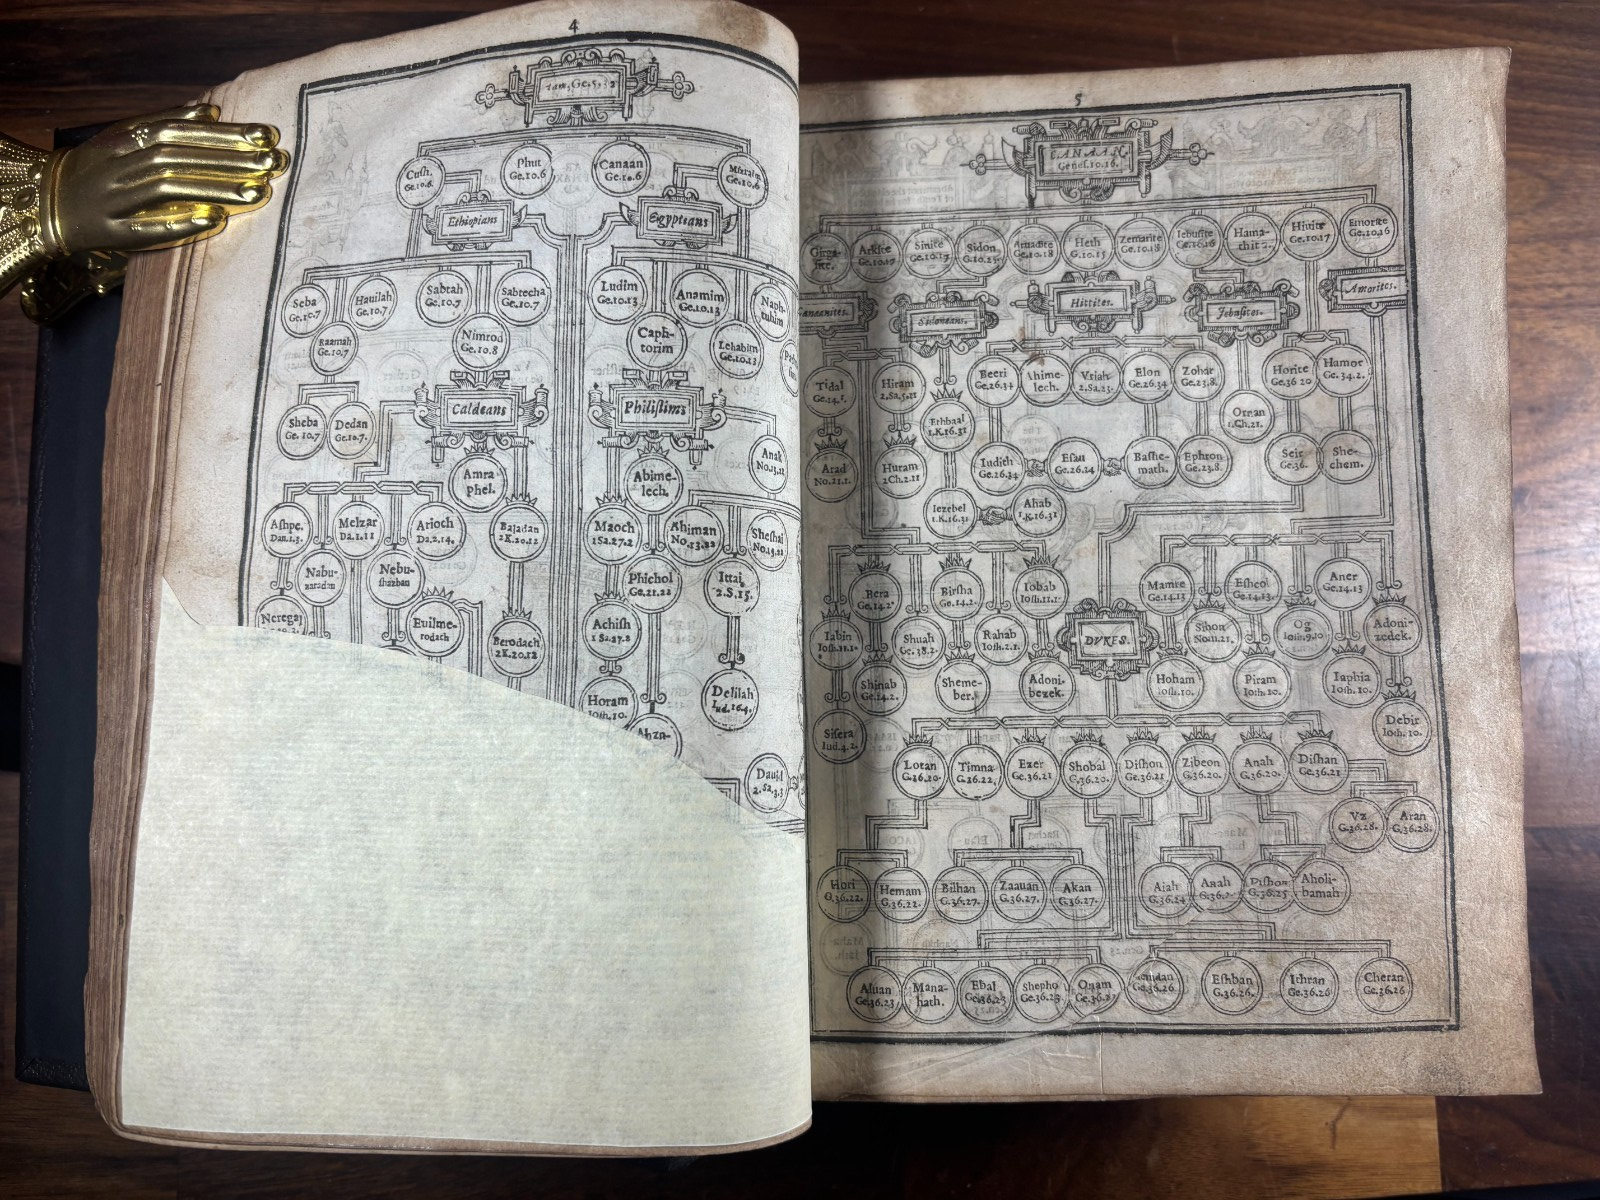 4
Ge.5.32
Cush.
Ge.10.6.
Phut
Ge.10.6
Canaan
Ge.10.6
Mizraim
Ge.10.6
Ethiopians
Egyptians
Seba
Ge.10.7
Hauilah
Ge.10.7
Sabtah
Ge.10.7
Sabtecha
Ge.10.7
Ludim
Ge.10.13
Anamim
Ge.10.13
Naph-
tuhim
Raamah
Ge.10.7
Nimrod
Ge.10.8
Caph-
torim
Lehabim
Ge.10.13
Sheba
Ge.10.7
Dedan
Ge.10.7.
Caldeans
Philistims
Amra
phel.
Abime-
lech.
Anak
No.13.22
Ashpe.
Dan.1.3.
Melzar
Da.1.11
Arioch
Da.2.14.
Baladan
2K.20.12
Maoch
1Sa.27.2
Ahiman
No.13.22
Sheshai
No.13.22
Nabu-
zaradan
Nebu-
shazban
Phichol
Ge.21.22
Ittai
2.S.15.
Neregal
Euilme-
rodach
Berodach
2K.20.12
Achish
1Sa.27.2
Horam
Iosh.10.
Delilah
Iud.16.4.
Ahza-
Dauid
2.Sa.3.3
5
CANAAN.
Genes.10.16.
Girga-
site.
Arkite
Ge.10.17
Sinite
Ge.10.17
Sidon
G.10.15.
Aruadite
Ge.10.18
Heth
G.10.15
Zemarite
Ge.10.18
Iebusite
Ge.10.16
Hama-
thit
Hiuite
Ge.10.17
Emorite
Ge.10.16
Sidonians.
Hittites.
Jebusites.
Amorites.
Tidal
Ge.14.1.
Hiram
2.Sa.5.11
Beeri
Ge.26.34
Ahime-
lech.
Vriah
2.Sa.23.
Elon
Ge.26.34
Zohar
Ge.23.8.
Horite
Ge.36 20
Hamor
Ge.34.2.
Ethbaal
1.K.16.31
Ornan
1.Ch.21.
Arad
No.21.1.
Huram
2Ch.2.11
Iudith
Ge.26.34
Esau
Ge.26.34
Bashe-
math.
Ephron
Ge.23.8.
Seir
Ge.36.
She-
chem.
Iezebel
1.K.16.31
Ahab
1.K.16.31
Bera
Ge.14.2.
Birsha
Ge.14.2.
Iobab
Iosh.11.1.
Mamre
Ge.14.13
Eshcol
Ge.14.13.
Aner
Ge.14.13
Iabin
Iosh.11.1.
Shuah
Ge.38.2.
Rahab
Iosh.2.1.
DVKES.
Sihon
No.21.
Og
Iosh.9.10
Adoni-
zedek.
Shinab
Ge.14.2.
Sheme-
ber.
Adoni-
bezek.
Hoham
Iosh.10.
Piram
Iosh.10.
Iaphia
Iosh.10.
Sisera
Iud.4.2.
Debir
Iosh.10.
Lotan
G.36.20.
Timna
G.36.22.
Ezer
G.36.21
Shobal
G.36.20.
Dishon
Ge.36.21
Zibeon
G.36.20.
Anah
G.36.20.
Dishan
Ge.36.21
Vz
G.36.28.
Aran
G.36.28.
Hori
G.36.22.
Hemam
G.36.22.
Bilhan
G.36.27.
Zaauan
G.36.27.
Akan
G.36.27.
Aiah
G.36.24
Anah
Dishon
G.36.25
Aholi-
bamah
Aluan
Ge.36.23
Mana-
hath.
Ebal
Ge.36.23
Shepho
Ge.36.23.
Onam
Ge.36.23
Hemdan
Ge.36.26.
Eshban
G.36.26.
Ithran
Ge.36.26
Cheran
Ge.36.26